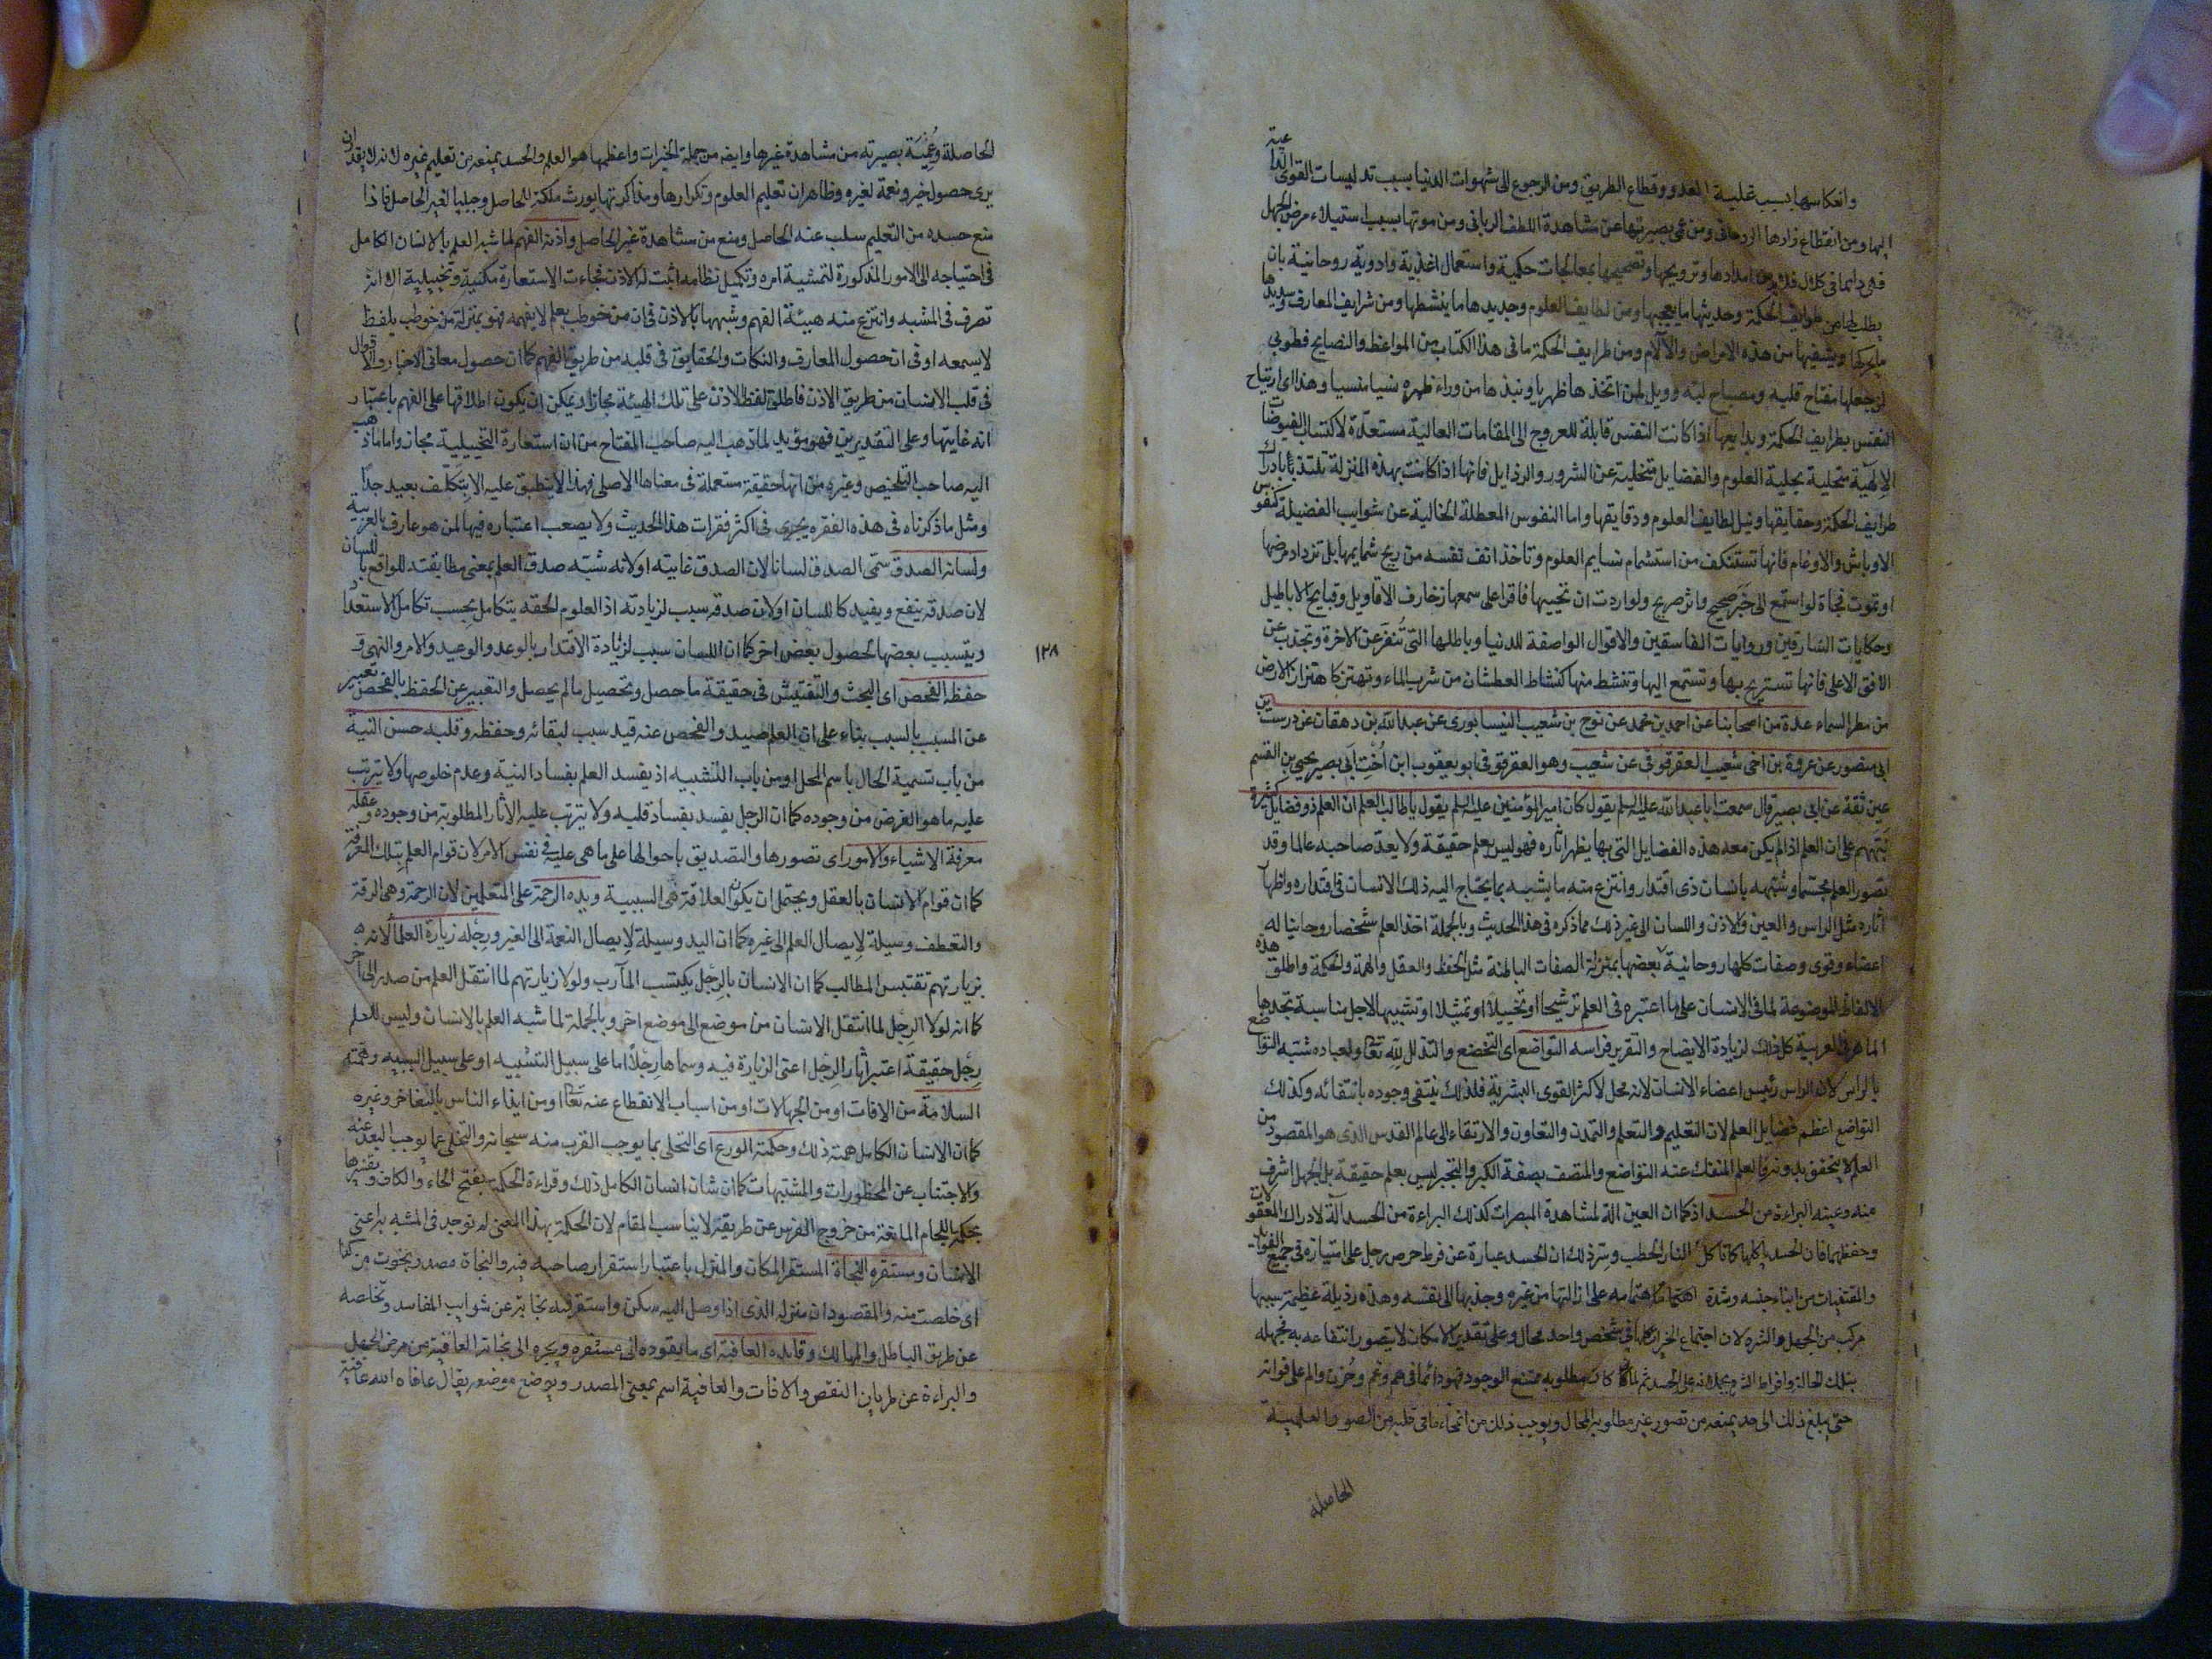 وانعكاسها بسبب غلبة العدو وقطاع الطريق ومن الرجوع الى شهوات الدنيا بسبب تدليسات القوى الداعية
اليها ومن انقطاع زادها الروحاني ومن عمى بصيرتها عن مشاهدة اللطف الرباني ومن موتها بسبب استيلاء مرض الجهل
فهى دايما فى كلال فلا بد من امدادها وترويحها وتصحيحها بمعالجات حكمية واستعمال اغذية وادوية روحانية بان
يطلب لها من طرايف الحكمة وحديثها ما يعجبها ومن لطايف العلوم وجديدها ما ينشطها ومن شرايف المعارف وسديدها
ما يحركها ويشفيها من هذه الامراض والآلام ومن طرايف الحكمة ما فى هذا الكتاب من المواعظ والنصايح فطوبى
لمن جعلها مفتاح قلبه ومصباح لبه وويل لمن اتخذها ظهريا ونبذها من وراء ظهره نسيا منسيا وهذا اى ارتياح
النفس بطرايف الحكمة وبدايعها اذا كانت النفس قابلة للعروج الى المقامات العالية مستعدّة لاكتساب الفيوضات
الالهية متحلية بحلية العلوم والفضايل متخلية عن الشرور والرذايل فانها اذا كانت بهذه المنزلة تلتذ بادراك
طرايف الحكمة وحقايقها ونيل لطايف العلوم ودقايقها واما النفوس المعطلة الخالية عن شوايب الفضيلة كنفوس
الاوباش والاوغام فانها تستنكف من استشمام نسايم العلوم وتاخذ انف نفسه من ريح شمايمها بل تزداد مرضها
او تموت فجاة لو استمع الى خبر صحيح واثر صريح ولو اردت ان تحييها فاقرا على سمعها زخارف الاقاويل وقبايح الاباطيل
وحكايات السارقين وروايات الفاسقين والاقوال الواصفة للدنيا وباطلها التى تُنفرّ عن الاخرة وتجذب عن
الافق الاعلى فانها تستريح بها وتستمع اليها وتنشط منها كنشاط العطشان من شرب الماء وتهتز كاهتزاز الارض
من مطر السماء عدة من اصحابنا عن احمد بن محمد عن نوح بن شعيب النيسابورى عن عبدالله بن دهقان عن درست بن
ابى منصور عن عروة بن اخى شعيب العقرقوفى عن شعيب وهو العقرقوفى ابو يعقوب ابن اُخت ابى بصير يحيى بن القسم
عين ثقة عن ابى بصير قال سمعت ابا عبدالله عليه السلم يقول كان امير المؤمنين عليه السلم يقول يا طالب العلم ان العلم ذو فضايل كثيرة
نبّههم على ان العلم اذا لم يكن معه هذه الفضايل التى بها يظهر اثاره فهو ليس بعلم حقيقة ولا يعدّ صاحبه عالما وقد
تصور العلم مجسّما وشبّهه بانسان ذى اقتدار وانتزع منه ما يشبه بما يحتاج اليه ذلك الانسان فى اقتداره واظهار
آثاره مثل الراس والعين والاذن واللسان الى غير ذلك مما ذكره فى هذا الحديث وبالجملة اخذ العلم شخصا روحانيا له
اعضاء وقوى وصفات كلها روحانية بعضها بمنزلة الصفات الباطنة مثل الحفظ والعقل والهمة والحكمة واطلق هذه
الالفاظ الموضوعة لما فى الانسان على ما اعتبره فى العلم ترشيحا او تخييلا او تمثيلا او تشبيها لاجل مناسبة تجدها
الماهر فى العربية كل ذلك لزيادة الايضاح والتقرير فراسه التواضع اى التخضع والتذلل لله تعالى ولعباده شبّه التواضع
بالراس لان الراس رئيس اعضاء الانسان لانه محل لاكثر القوى البشرية فلذلك ينتفى وجوده بانتفائه وكذلك
التواضع اعظم فضايل العلم لان التعليم والتعلم والتمدن والتعاون والارتقاء الى عالم القدس الذى هو المقصود من
العلم لا يتحقق بدونه فالعلم المنفك عنه التواضع والمتصف بصفة الكبر والتجبر ليس بعلم حقيقة بل الجهل اشرف
منه وعينه البراءة من الحسد اذ كما ان العين آلة لمشاهدة المبصرات كذلك البراءة من الحسد آلة لادراك المعقولات
وحفظها فان الحسد ياكلها كما تاكل النار الحطب وسرّ ذلك ان الحسد عبارة عن فرط حرص رجل على امتيازه فى جميع الفوايد
والمقتنيات من ابناء جنسه وشدة اهتمامه على ازالتها من غيره وجذبها الى نفسه وهذه رذيلة عظيمة سببها
مركب من الجهل والشره لان اجتماع الخيرات كلها فى شخص واحد محال وعلى تقدير الامكان لا يتصور انتفاعه به فجهله
بتلك الحالة وافراط الشره يحملانه على الحسد ثم لما كان مطلوبه ممتنع الوجود فهو دائما فى هم وغم وحُزن والم على فواته
حتى يبلغ ذلك الى حد يمنعه من تصور غير مطلوبه المحال ويوجب ذلك من انمحاء ما فى قلبه من الصور العلمية
الحاصلة
الحاصلة وعمية بصيرته من مشاهدة غيرها وايضه من جملة الخيرات واعظمها هو العلم والحسد يمنعه من تعليم غيره لانه لا يقدر ان
يرى حصول خير ونعمة لغيره وظاهر ان تعليم العلوم وتكرارها ومذاكرتها يورث ملكة الحاصل وجلبا لغير الحاصل فاذا
منع حسده من التعليم سلب عنه الحاصل ومنع من مشاهدة غير الحاصل واذنه الفهم لما شبه العلم بالانسان الكامل
فى احتياجه الى الامور المذكورة لتمشية امره وتكميل نظامه اثبت له الاذن فجاءت الاستعارة مكنية وتخييلية الا انه
تصرف فى المشبه وانتزع منه هيئة الفهم وشبهها بالاذن فى ان من خوطب بعلم لا يفهمه فهو بمنزلة من خوطب بلفظ
لا يسمعه او فى ان حصول المعارف والنكات والحقايق فى قلبه من طريق الفهم كما ان حصول معانى الاخبار والاقوال
فى قلب الانسان من طريق الاذن فاطلق لفظ الاذن على تلك الهيئة مجازا ويمكن ان يكون اطلاقها على الفهم باعتبار
انه غايتها وعلى التقديرين فهو مؤيد لما ذهب اليه صاحب المفتاح من ان استعارة التخييلية مجاز واما ما ذهب
اليه صاحب التلخيص وغيره من انها حقيقة مستعملة فى معناها الاصلى فهذا لا ينطبق عليه الا بتكلّف بعيد جدا
ومثل ما ذكرناه فى هذه الفقره يجرى فى اكثر فقرات هذا الحديث ولا يصعب اعتباره فيها لمن هو عارف بالعربية
ولسانه الصدق سمّى الصدق لسانا لان الصدق غايته او لانه شبّه صدق العلم بمعنى مطابقته للواقع باللسان
لان صدقه ينفع ويفيد كاللسان او لان صدقه سبب لزيادته اذ العلوم الحقه يتكامل بحسب تكامل الاستعداد
ويتسبب بعضها لحصول بعض اخر كما ان اللسان سبب لزيادة الاقتدار بالوعد والوعيد والامر والنهى و
١٢٨
حفظه الفحص اى البحث والتفتيش فى حقيقة ما حصل وتحصيل ما لم يحصل والتعبير عن الحفظ بالفحص تعبير
عن المسبب بالسبب بناء على ان العلم صيد والفحص عنه قيد سبب لبقائه وحفظه وقلبه حسن النية
من باب تسمية الحال باسم المحل او من باب التشبيه اذ يفسد العلم بفساد النية وعدم خلوصها ولا يترتب
عليه ما هو الغرض من وجوده كما ان الرجل يفسد بفساد قلبه ولا يترتب عليه الاثار المطلوبة من وجوده وعقله
معرفة الاشياء والامور اى تصورها والتصديق باحوالها على ما هى عليه فى نفس الامر لان قوام العلم بتلك المعرفة
كما ان قوام الانسان بالعقل ويحتمل ان يكون العلاقة هى السببية ويده الرحمة على المتعلمين لان الرحمة وهى الرقة
والتعطف وسيلة لايصال العلم الى غيره كما ان اليد وسيلة لايصال النعمة الى الغير ورجله زيارة العلماء لانه
بزيارتهم تقتبس المطالب كما ان الانسان بالرِجل يكتسب المآرب ولولا زيارتهم لما انتقل العلم من صدر الى آخر
كما انه لولا الرِجل لما انتقل الانسان من موضع الى موضع اخر وبالجملة لما شبه العلم بالانسان وليس للعلم
رِجل حقيقة اعتبر اثار الرِجل اعنى الزيارة فيه وسماها رِجلاً اما على سبيل التشبيه او على سبيل السببية وهمّته
السلامة من الافات او من الجهالات او من اسباب الانقطاع عنه تعالى او من ايذاء الناس بالتفاخر وغيره
كما ان الانسان الكامل همته ذلك وحكمته الورع اى التحلى بما يوجب القرب منه سبحانه والتخلى عما يوجب البعد عنه
والاجتناب عن المحظورات والمشتبهات كما ان شان انسان الكامل ذلك وقراءة الحكمه بفتح الحاء والكاف وتفسيرها
بحكمة اللجام المانعة من خروج الفرس عن طريقه لا يناسب المقام لان الحكمة بهذا المعنى لم توجد فى المشبه به اعنى
الانسان ومستقره النجاة المستقر المكان والمنزل باعتبار استقرار صاحبه فيه والنجاة مصدر نجوت من كذا
اى خلصت منه والمقصود ان منزله الذى اذا وصل اليه سكن واستقر فيه نجاته عن شوايب المفاسد وتخلصه
عن طريق الباطل والمهالك وقايده العافية اى ما يقوده الى مستقره ويجره الى نجاته العافية من مرض الجهل
والبراءة عن طريان النقص والافات والعافية اسم بمعنى المصدر ويوضع موضعه يقال عافاه الله عافية